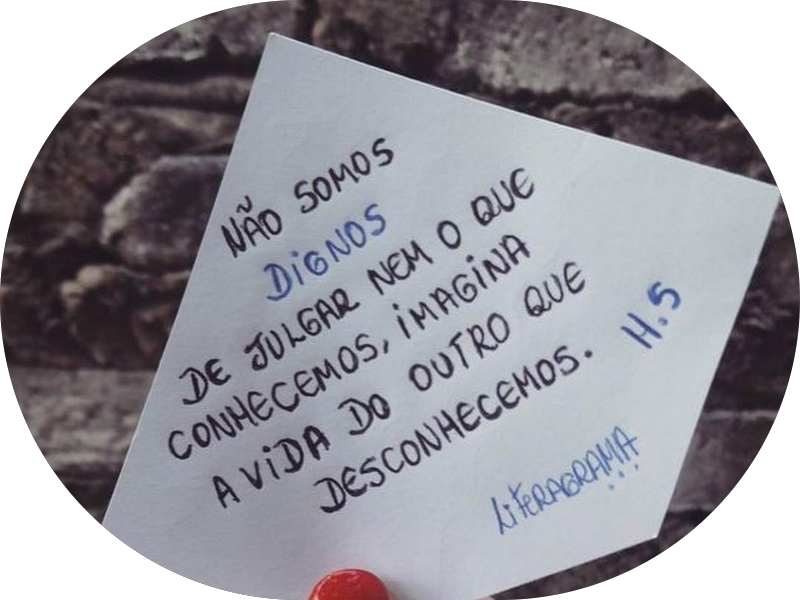 NÃO SOMOS
DiGNOS
DE JULGAR NEM O QUE
CONHECEMOS, iMAGiNA
A ViDA DO OUTRO QUE
DESCONHECEMOS.
H.S
LiTERAGRAMA
...